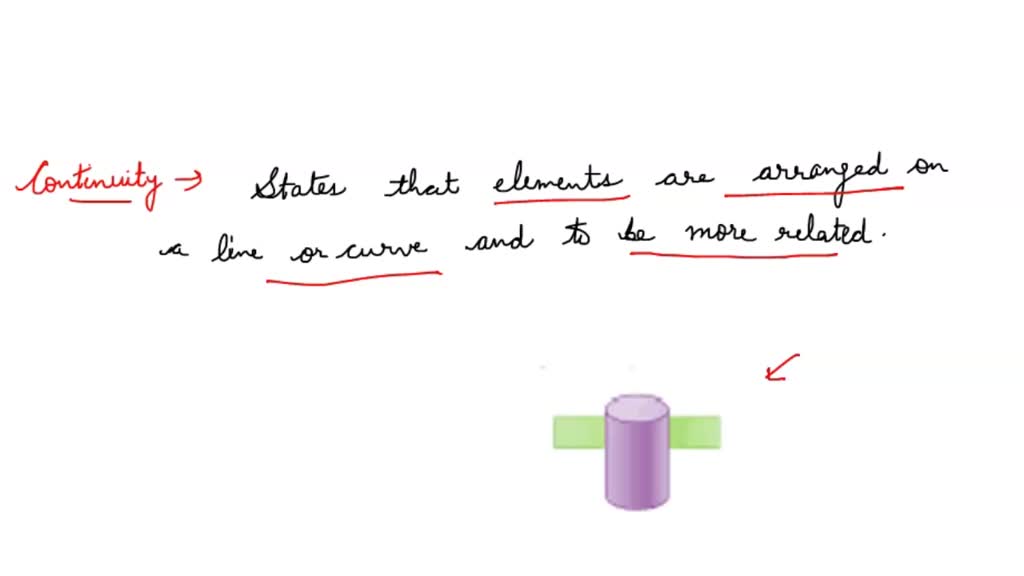 Continuity → States that elements are arranged on
a line or curve and to be more related.